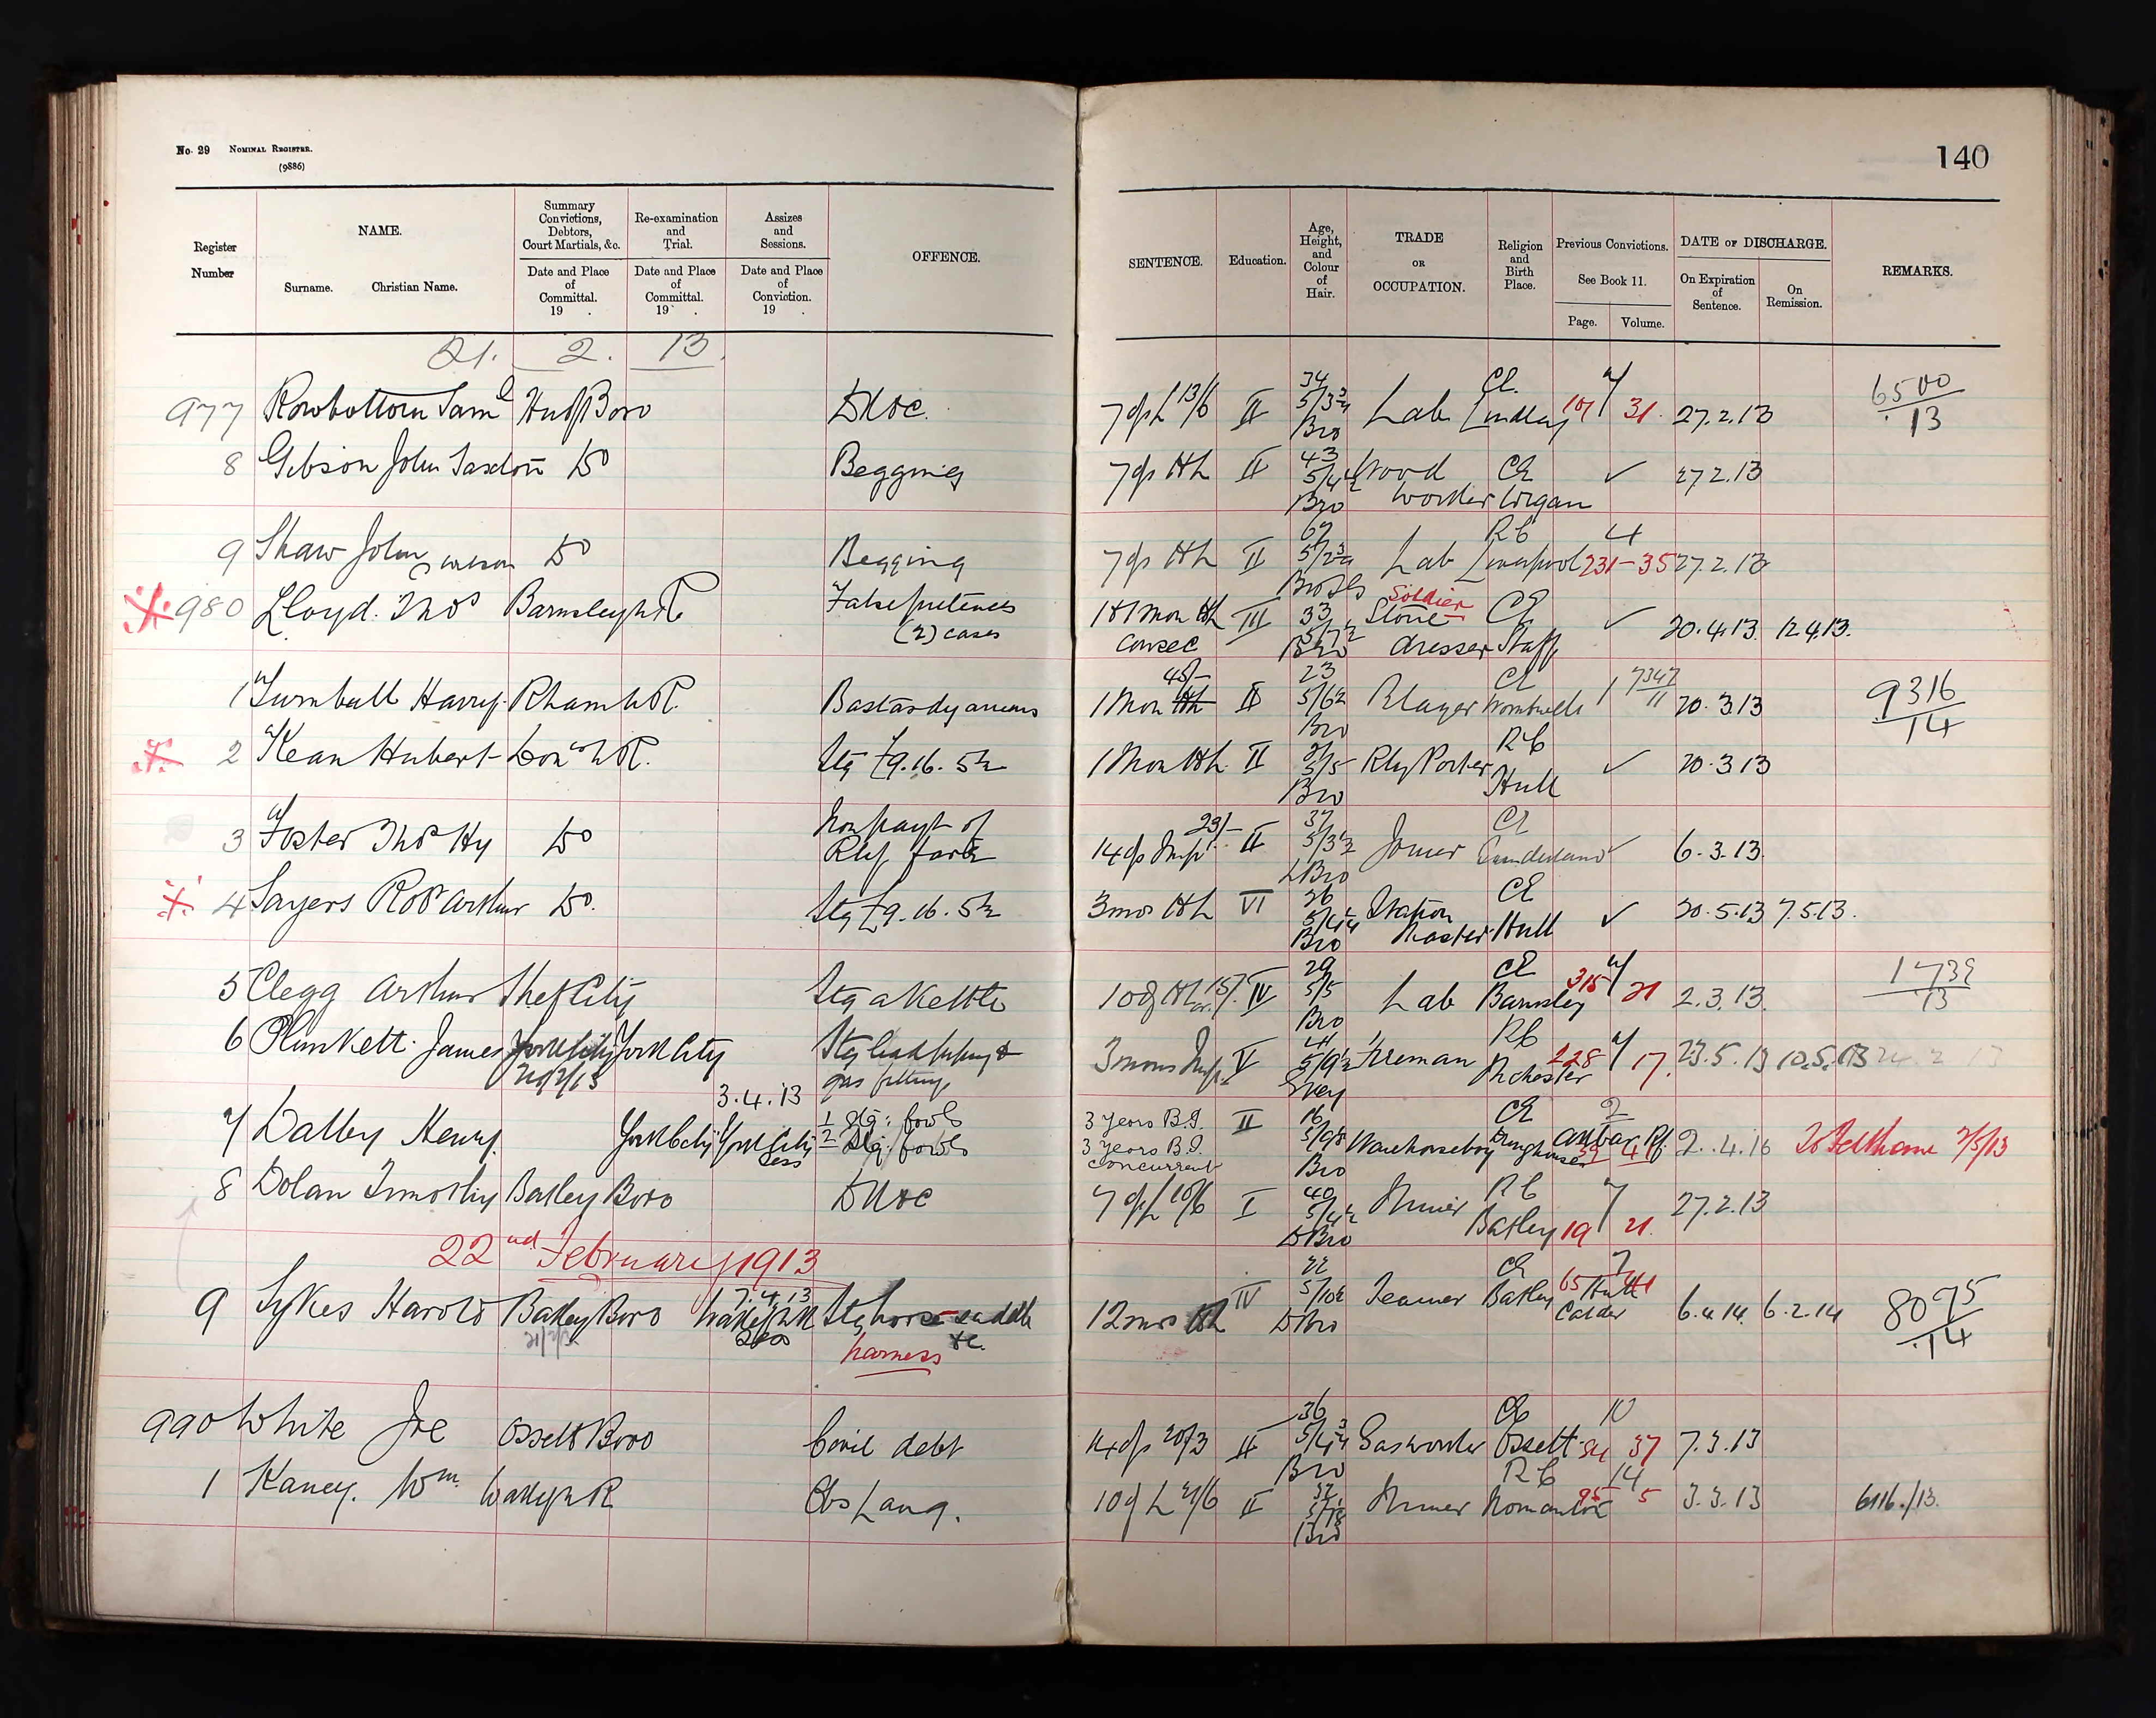 No. 29 NOMINAL REGISTER.
(9886)
140
Register Number
NAME.
Surname. Christian Name.
Summary Convictions, Debtors, Court Martials, &c.
Date and Place of Committal. 19 .
Re-examination and Trial.
Date and Place of Committal. 19 .
Assizes and Sessions.
Date and Place of Conviction. 19 .
OFFENCE.
SENTENCE.
Education.
Age, Height, and Colour of Hair.
TRADE OR OCCUPATION.
Religion and Birth Place.
Previous Convictions.
See Book 11.
Page. Volume.
DATE OF DISCHARGE.
On Expiration of Sentence.
On Remission.
REMARKS.
21. 2. 13
977 Rowbottom Saml Hudf Boro 34 CE 6500/13
7 ds II 5/3¾ Lab Lindley 101 31. 27.2.13
Bro
8 Gibson John Saxton Do Begging 7 ds HL II 43 Wood CE ✓ 27.2.13
Bro worker Wigan
9 Shaw John Do Begging 7 ds HL II Lab RC 4
Liverpool 231-35 27.2.13
980 Lloyd. Thos Barnsley WR False pretences
(2) cases
consec III 33 Soldier
Stone dresser CE Staff ✓ 20.4.13 12.4.13.
Bro
1 Turnbull Harry Rham WR. Bastardy arrears 1 Mon II 23 CE
5/6½ Bro 7347/11 20.3.13 9316/14
2 Kean Hubert Donr WR. Stg £9.16.5½ 1 Mon HL II
5/5 Rly Porter RC Hull ✓ 20.3.13
Bro
3 Foster Thos Hy Do Non payt of
Rly fare 23/-
14 ds Imp II 37
5/3½ Joiner CE Sunderland ✓ 6.3.13.
LBro
4 Sayers Robt Arthur Do. Stg £9.16.5½ 3 mos HL VI 26
Bro Station Master CE Hull ✓ 20.5.13 7.5.13.
5 Clegg Arthur Shef City Stg a Kettle 10 ds HL IV 29
5/5 Bro Lab CE Barnsley 315 21 2.3.13. 1739/13
6 Plunkett James York City York City
21/2/13
Stg lead piping &
gas fittings
3 mons Imp. V
5/9½ Grey Fireman RC Mchester 228 17. 23.5.13 10.5.13
3.4.13
7 Dalby Henry York City York City
Sess
1 Stg: fowls
2 Stg: fowls
3 years B.I. II 16
3 years B.I.
concurrent
Bro Warehouseboy CE 2
39 41 2.4.16 To Feltham 2/5/13
8 Dolan Timothy Batley Boro 7 ds 10/6 I 40
5/4½ DBro Miner RC Batley 7 19 21. 27.2.13
22nd February 1913
9 Sykes Harold Batley Boro 7.4.13
Wakefd WR
Sess
Stg horse saddle
&c.
harness
12 mos HL IV 22
5/10½ DBro Teamer CE Batley 7
65 41
Calder 6.4.14. 6.2.14 8095/14
990 White Joe Ossett Boro Civil debt 14 ds II 36
5/4¾ Bro Gasworker CE Ossett 10 37 7.3.13
1 Kaney. Wm. Wakef WR Obs Lang. 10 ds 21/6 II
Bro Miner RC Normanton 14
95 5 3.3.13 6116./13.